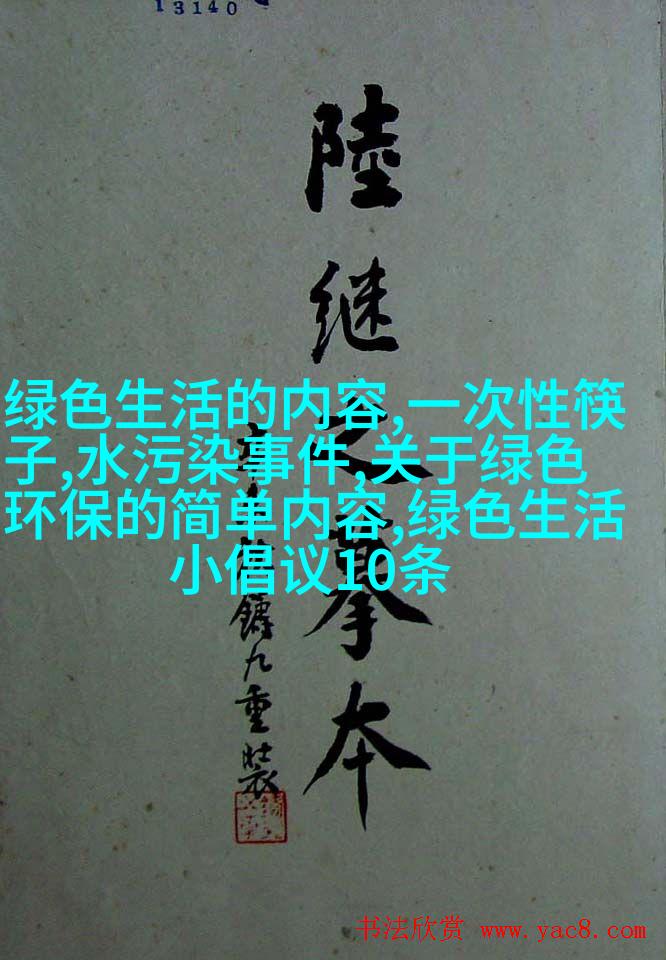 13140
陸继之摹本
鑄九重裝
绿色生活的内容,一次性筷
子,水污染事件,关于绿色
环保的简单内容,绿色生活
小倡议10条
书法欣赏 www.yac8.com